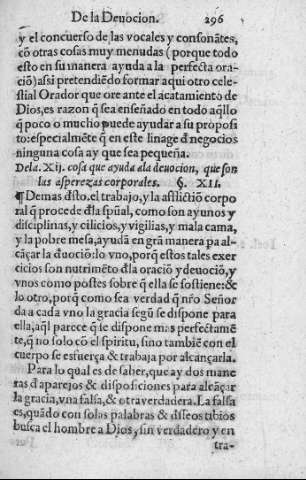 De la Deuocion. 296
y el concuerso de las vocales y consonãtes,
cõ otras cosas muy menudas (porque todo
esto en su manera ayuda a la perfecta ora-
ciõ) assi pretendiẽdo formar aqui otro cele-
stial Orador que ore ante el acatamiento de
Dios, es razon q̃ sea enseñado en todo aq̃llo
q̃ poco o mucho puede ayudar a su proposi
to: especialmẽte q̃ en este linage đ negocios
ninguna cosa ay que sea pequeña.
De la .Xij. cosa que ayuda ala deuocion, que son
las asperezas corporales. §. XII.
¶ Demas đsto. el trabajo, y la aflictiõ corpo
ral q̃ procede đla sp̃ual, como son ayunos y
disciplinas, y cilicios, y vigilias, y mala cama,
y la pobre mesa, ayudã en grã manera pa al-
cãçar la đuociõ: lo vno, porq̃ estos tales exer
cicios son nutrimẽto đla oraciõ y deuociõ, y
vnos como postes sobre q̃ ella se sostiene: &
lo otro, porq̃ como sea verdad q̃ nr̃o Señor
da a cada vno la gracia segũ se dispone para
ella, aq̃l parece q̃ se dispone mas perfectamẽ
te, q̃ no solo cõ el spiritu, sino tambiẽ con el
cuerpo se esfuerça & trabaja por alcançarla.
Para lo qual es de saber, que ay dos mane
ras đ aparejos & disposiciones para alcãçar
la gracia, vna falsa, & otra verdadera. La falsa
es, quãdo con solas palabras & đsseos tibios
busca el hombre a Dios, sin verdadero y en
tra-